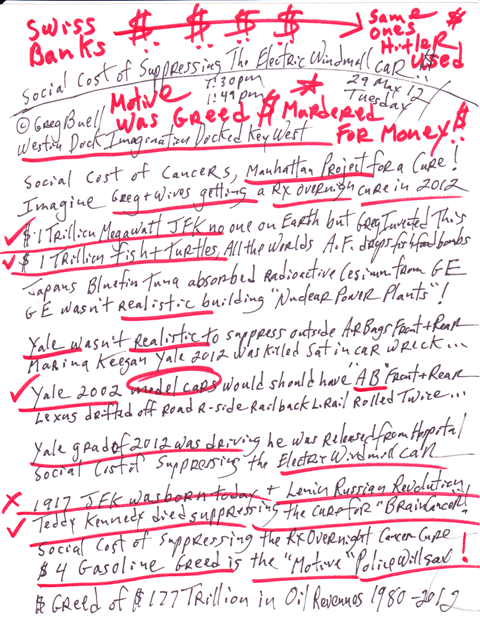 Swiss Banks $ $ $ $ Same ones Hitler used $
Social Cost of Suppressing The Electric Windmill CAR...
1:30pm
1:49pm
29 May 12
Tuesday
Motive was Greed $ Murdered For Money $
© Greg Buell
Weston Dock Imagination Docked Key West
Social Cost of Cancers, Manhattan Project for a Cure!
Imagine Greg + Wives getting a Rx Overnight Cure in 2012
$1 Trillion Megawatt JFK no one on Earth but Greg Invented This
$1 Trillion fish + Turtles All the Worlds A.F. drops fish food bombs
Japans Bluefin Tuna absorbed Radioactive Cesium from GE
GE wasn't realistic building "Nuclear Power Plants"!
Yale wasn't realistic to suppress outside Air Bags Front + Rear
Marina Keegan Yale 2012 was killed Sat in car wreck...
Yale 2002 model cars would should have "AB" Front + Rear
Lexus drifted off Road R-side Rail back L.Rail Rolled Twice...
Yale grad of 2012 was driving he was Released from Hospital
Social Cost of Suppressing the Electric Windmill CAR
1917 JFK was born today + Lenin Russian Revolution!
Teddy Kennedy died suppressing the cure for "Brain Cancer"!
Social Cost of Suppressing the Rx Overnight Cancer Cure
$4 Gasoline Greed is the "Motive" Police Will say!
$ Greed of $177 Trillion in Oil Revenues 1980-2012